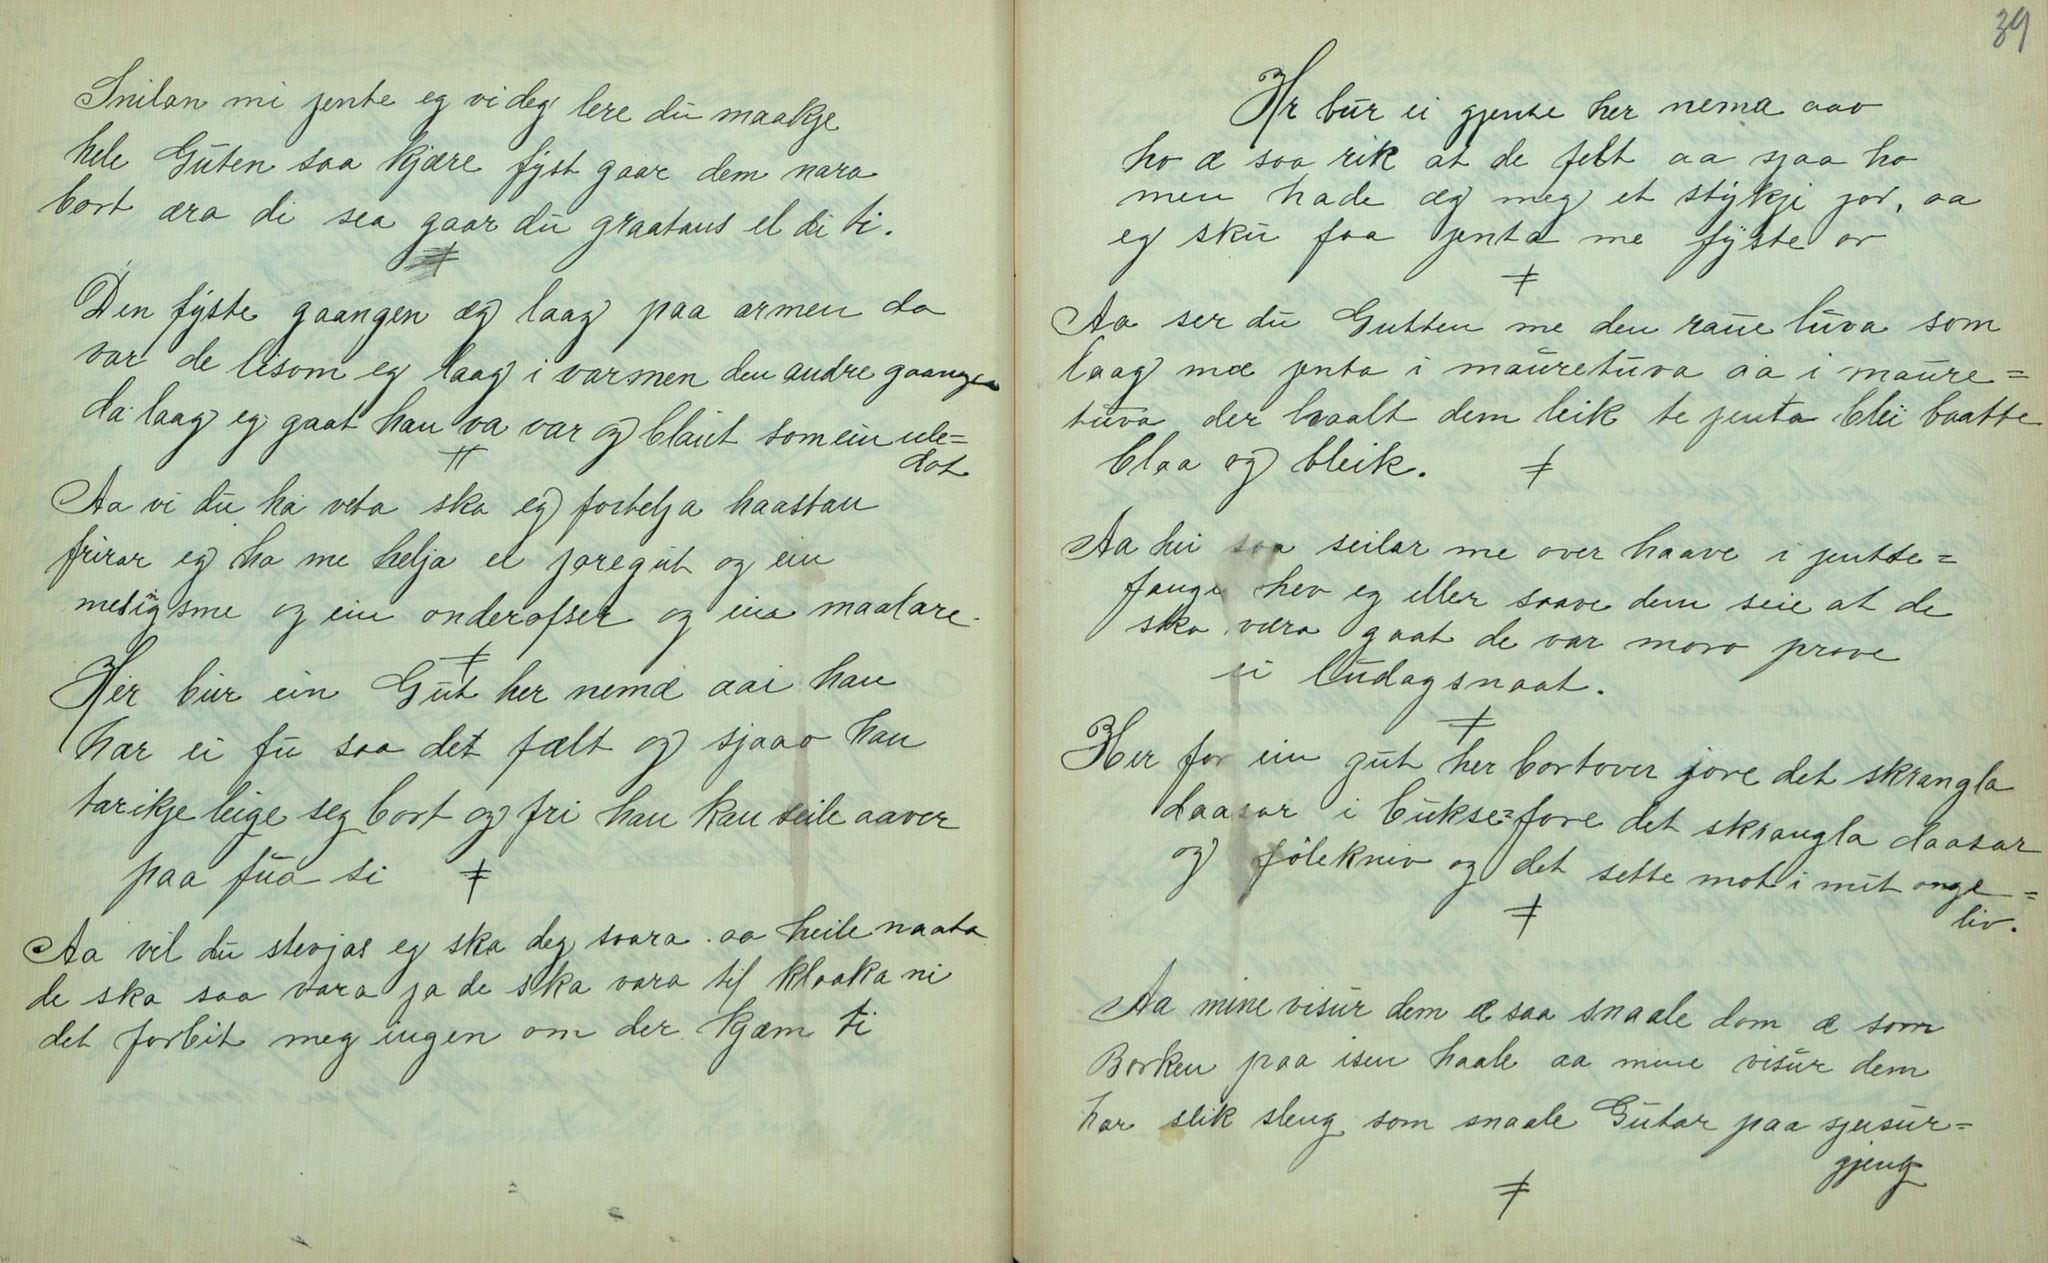 Snilan mi jente eg vi deg lere du maakje
hele Guten saa kjære fyst gaar dem nara
bort æra di sea gaar du graatans el di ti.
Den fyste gaangen æg laag paa armen da
var de lisom eg laag i varmen den andre gaangen
da laag eg gaat han va var og blaut som ein ule=
dot
Aa vi du ha veta ska eg fortelja haastan
frirar eg ha me helja ei jaregut og ein
mesingsme og ein onderofser og ein maalare.
Her bur ein Gut her nemæ aai han
har ei fu saa det fælt og sjaao han
tarikje leige seg bort og fri han kan seile aaver
paa fua si
Aa vil du stevjas eg ska deg svara . aa heile naata
de ska saa vara ja de ska vara til klaaka ni
det forbit meg ingen om der kjæm ti
39
Hr bur ei gjente her nema aao
ho æ saa rik at de felt aa sjaa ho
men hade æg meg et stykje jor, aa
eg sku faa jenta me fyste or
Aa ser du Gutten me den raue luva som
laag mæ jenta i mauretuva aa i maure=
tuva der haalt dem leik te jenta blei baatte
blaa og bleik.
Aa hei saa seilar me over haave i jentte=
fange hev eg eller saave dem seie at de
ska væra gaat de var moro prove
ei ludagsnaat.
Her for ein gut her bortover jore det skrangla
daasar i bukse=fore det skrangla daasar
og følekniv og det sette mot i mit onge=
liv.
Aa mine visur dem æ saa snaale dom æ som
Borken paa isen haale aa mine visur dem
har slik sleng som snaale Gutar paa sjusur=
gjeng